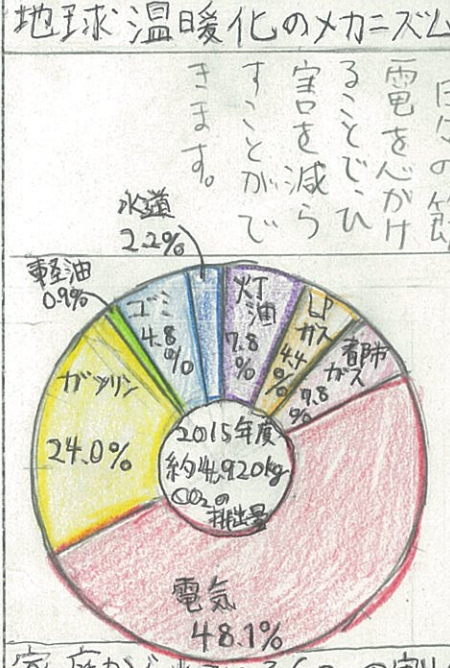 地球温暖化のメカニズム
電を心がけ
ることで、ひ
害を減ら
すことがで
きます。
水道
2.2%
軽油
0.9%
ゴミ
4.8
%
灯油
7.8
%
LP
ガス
4.4
%
都市
ガス
7.8
%
ガソリン
24.0%
2015年度
約4,920kg
CO₂の
排出量
電気
48.1%